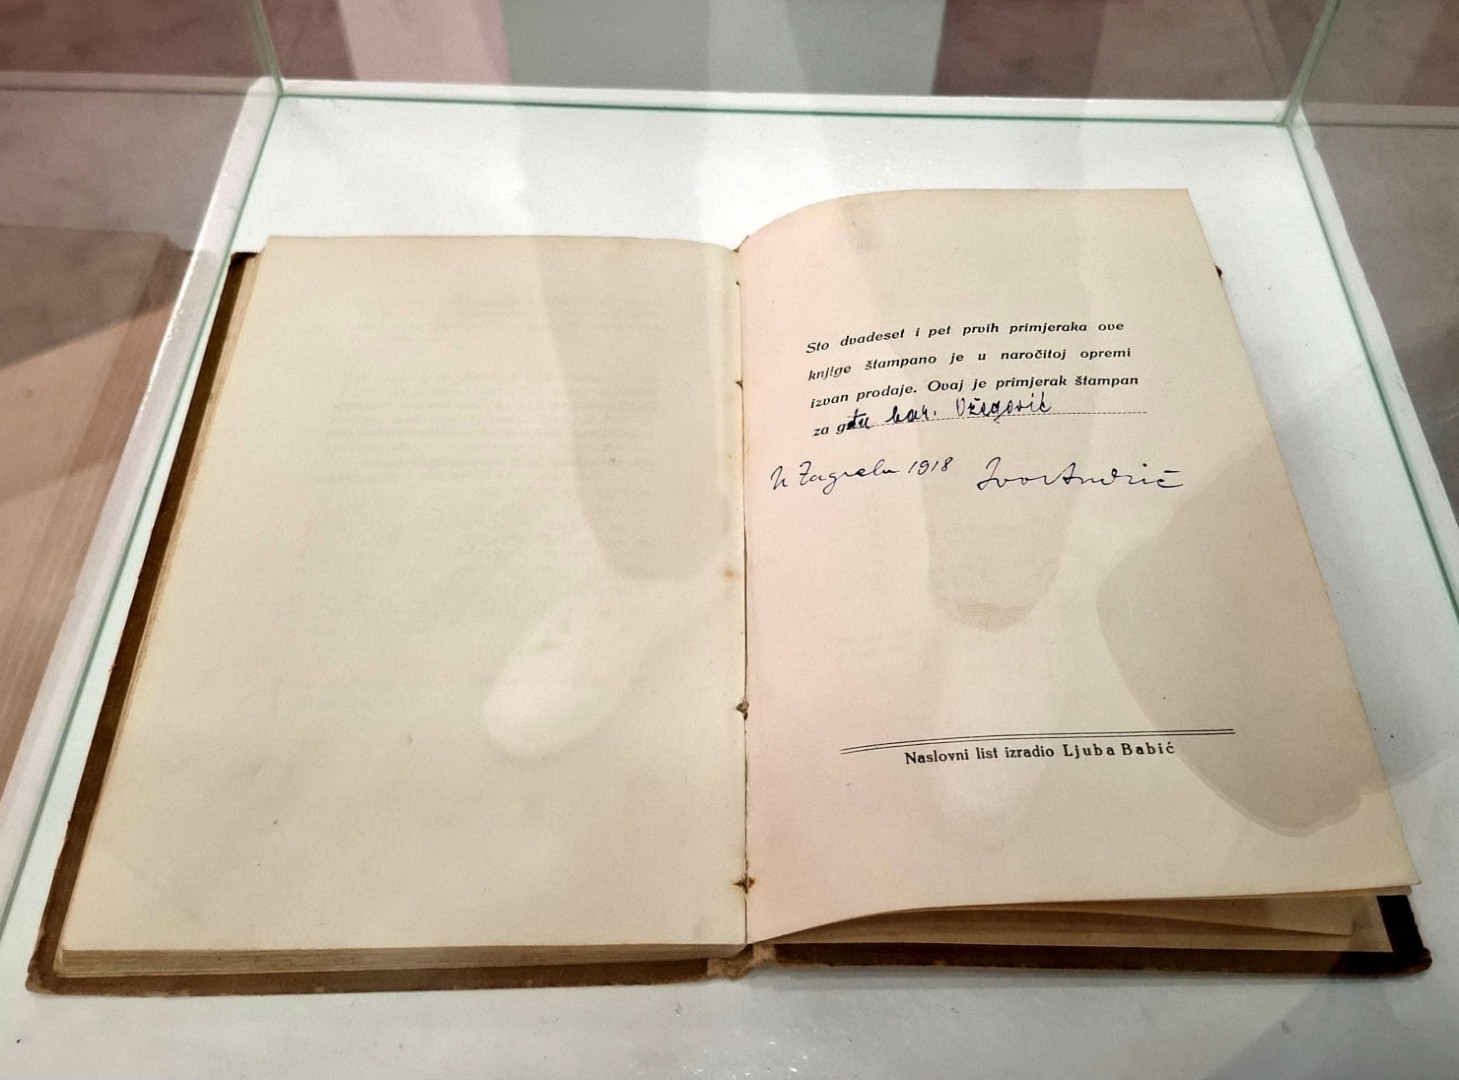 Sto dvadeset i pet prvih primjeraka ove
knjige štampano je u naročitoj opremi
izvan prodaje. Ovaj je primjerak štampan
za gđu bar. Ožegović
U Zagrebu 1918 Ivo Andrić
Naslovni list izradio Ljuba Babić